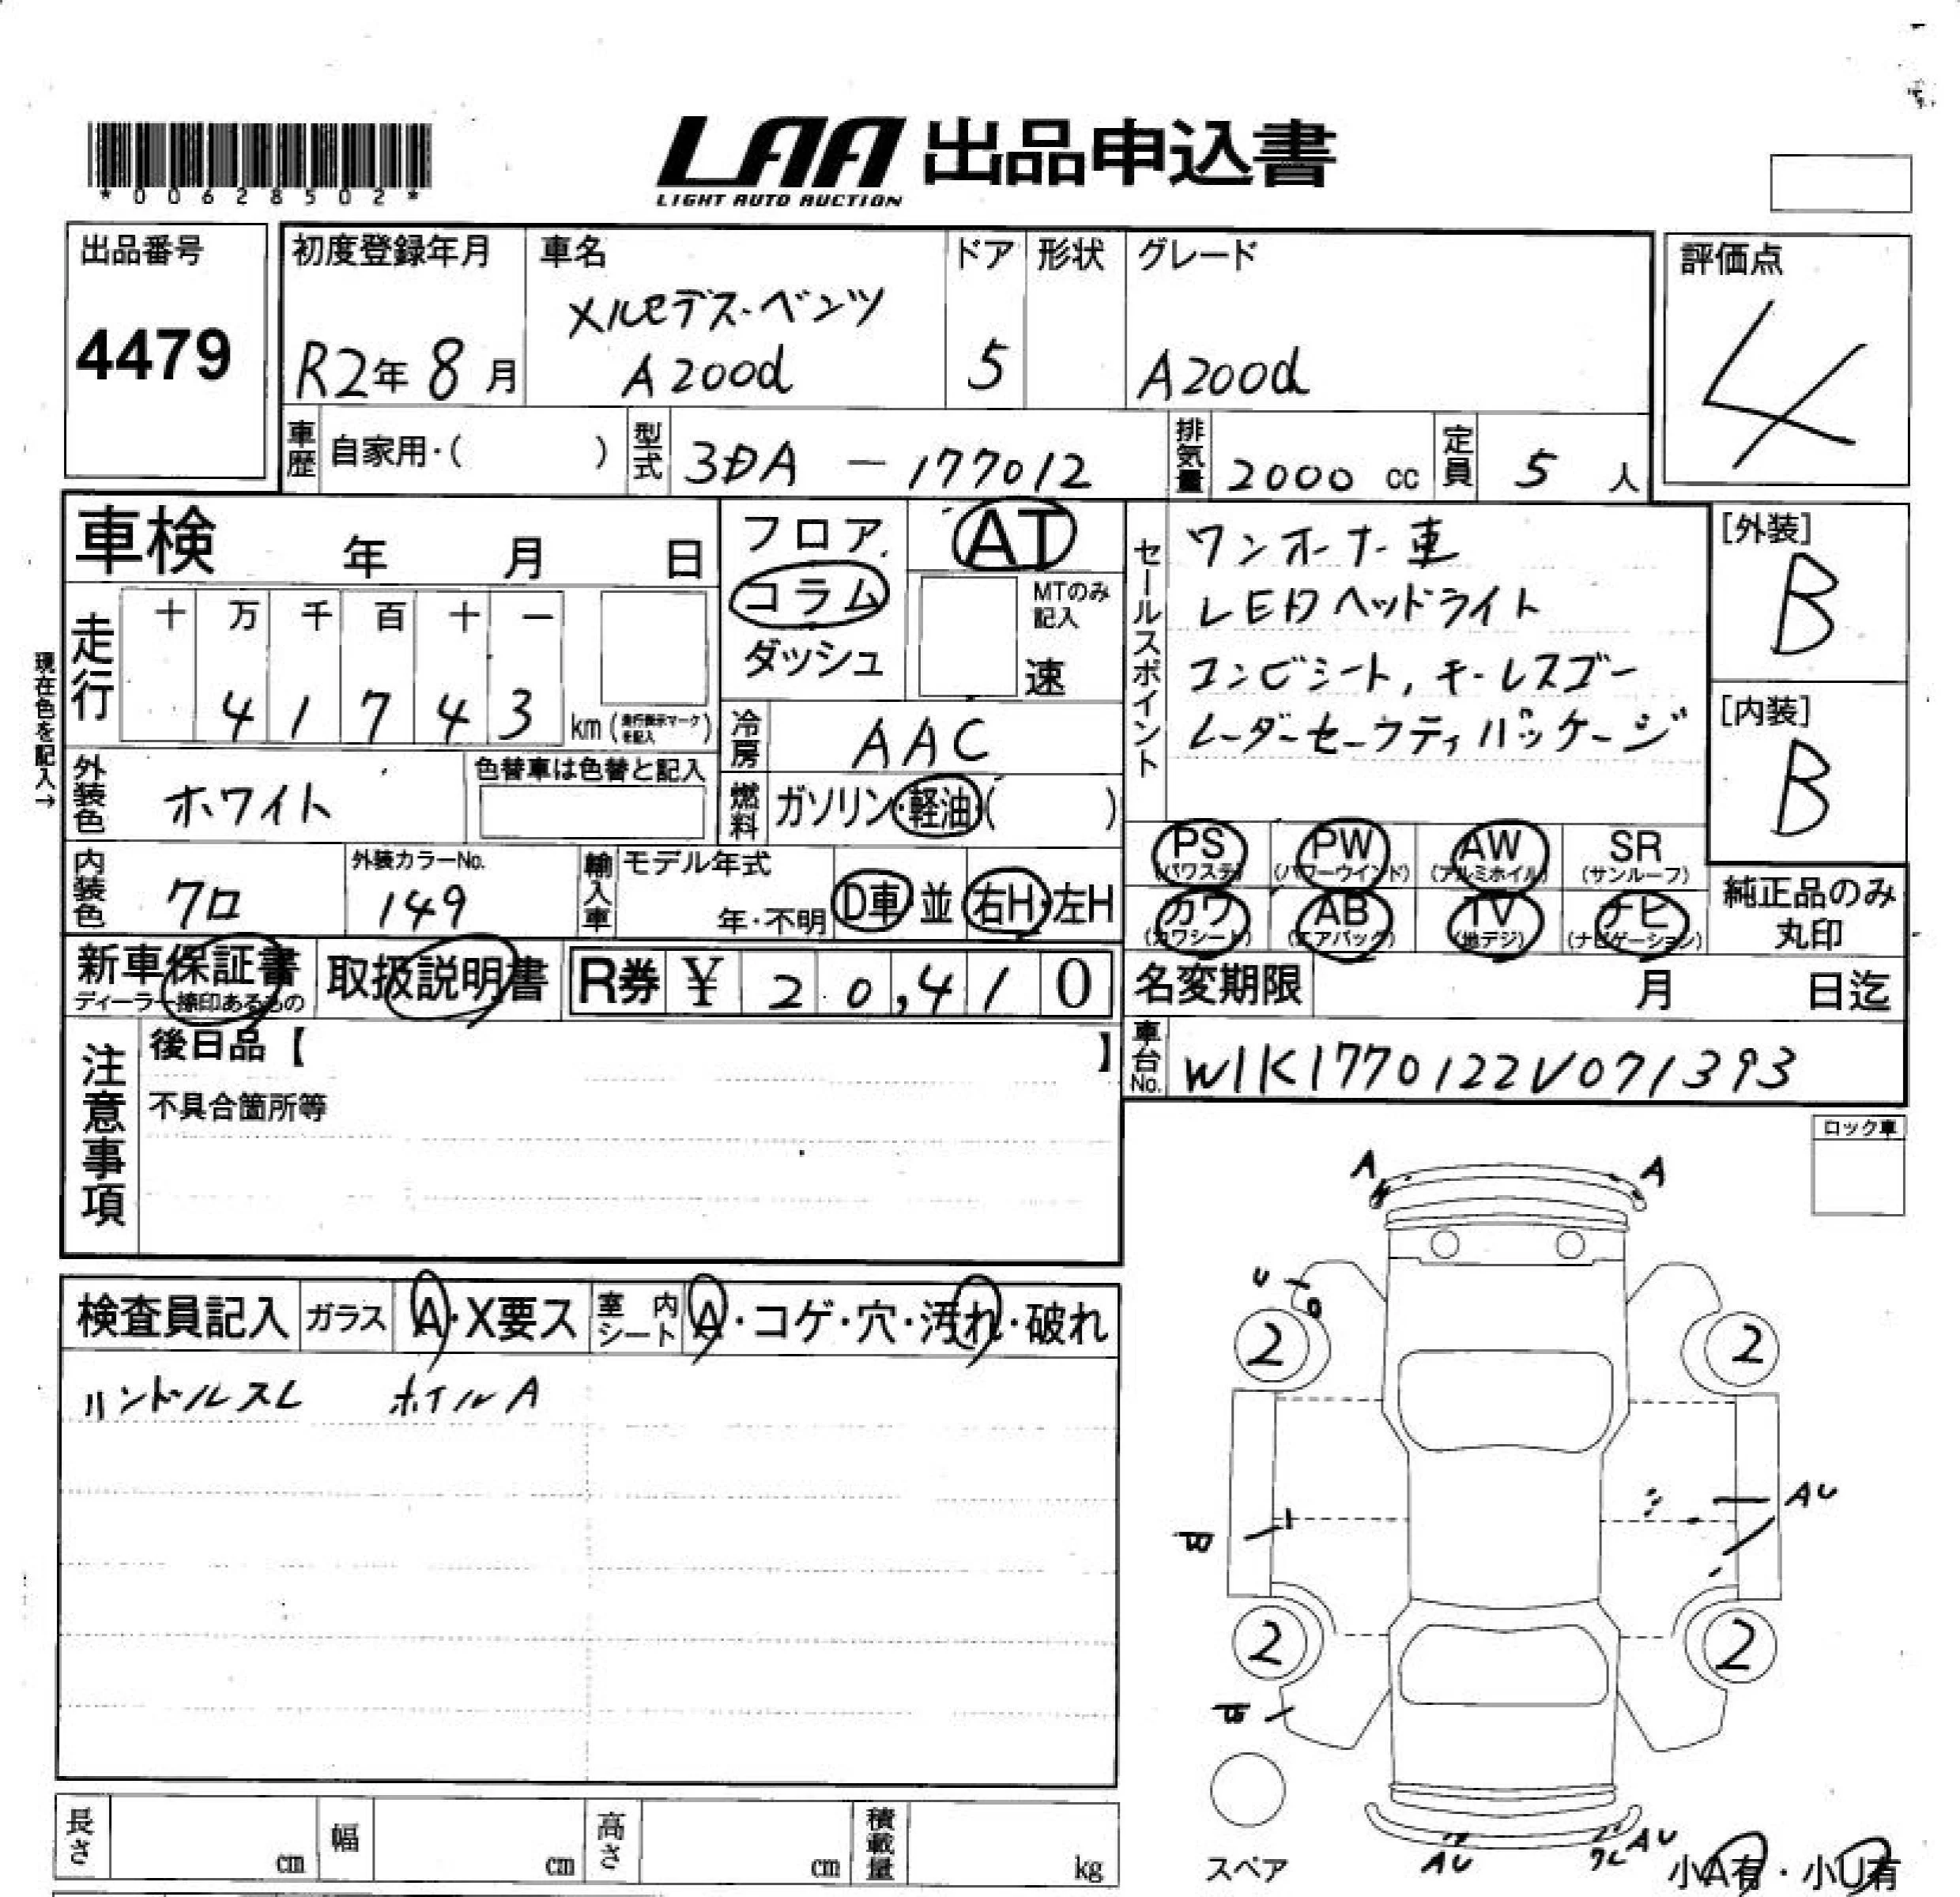 *00628502*
LAA 出品申込書
LIGHT AUTO AUCTION
出品番号
4479
初度登録年月
R2年 8月
車名
メルセデス・ベンツ
A200d
ドア
5
形状
グレード
A200d
評価点
4
車歴 自家用・( )
型式 3DA - 177012
排気量 2000 cc
定員 5 人
車検 年 月 日
現在色を記入→
走行
十 万 千 百 十 一
4 1 7 4 3 km (走行表示マークを記入)
フロア
コラム
ダッシュ
AT
MTのみ記入
速
冷房 AAC
燃料 ガソリン・軽油・( )
外装色 ホワイト
色替車は色替と記入
内装色 クロ
外装カラーNo.
149
輸入車 モデル年式
年・不明
D車・並
右H・左H
セールスポイント
ワンオーナー車
LEDヘッドライト
コンビシート, キーレスゴー
レーダーセーフティパッケージ
[外装]
B
[内装]
B
PS (パワステ)
PW (パワーウインド)
AW (アルミホイル)
SR (サンルーフ)
カワ (カワシート)
AB (エアバック)
TV (地デジ)
ナビ (ナビゲーション)
純正品のみ
丸印
新車保証書
ディーラー捺印あるもの
取扱説明書
R券 ¥ 20,410
名変期限 月 日迄
車台No. W1K1770122V071393
注意事項
後日品【 】
不具合箇所等
ロック車
検査員記入
ガラス A・X要ス
室内シート A・コゲ・穴・汚れ・破れ
ハンドルスレ ホイルA
A
A
U
2
2
AU
2
2
AU
AU
スペア
小A有・小U有
長さ cm
幅 cm
高さ cm
積載量 kg